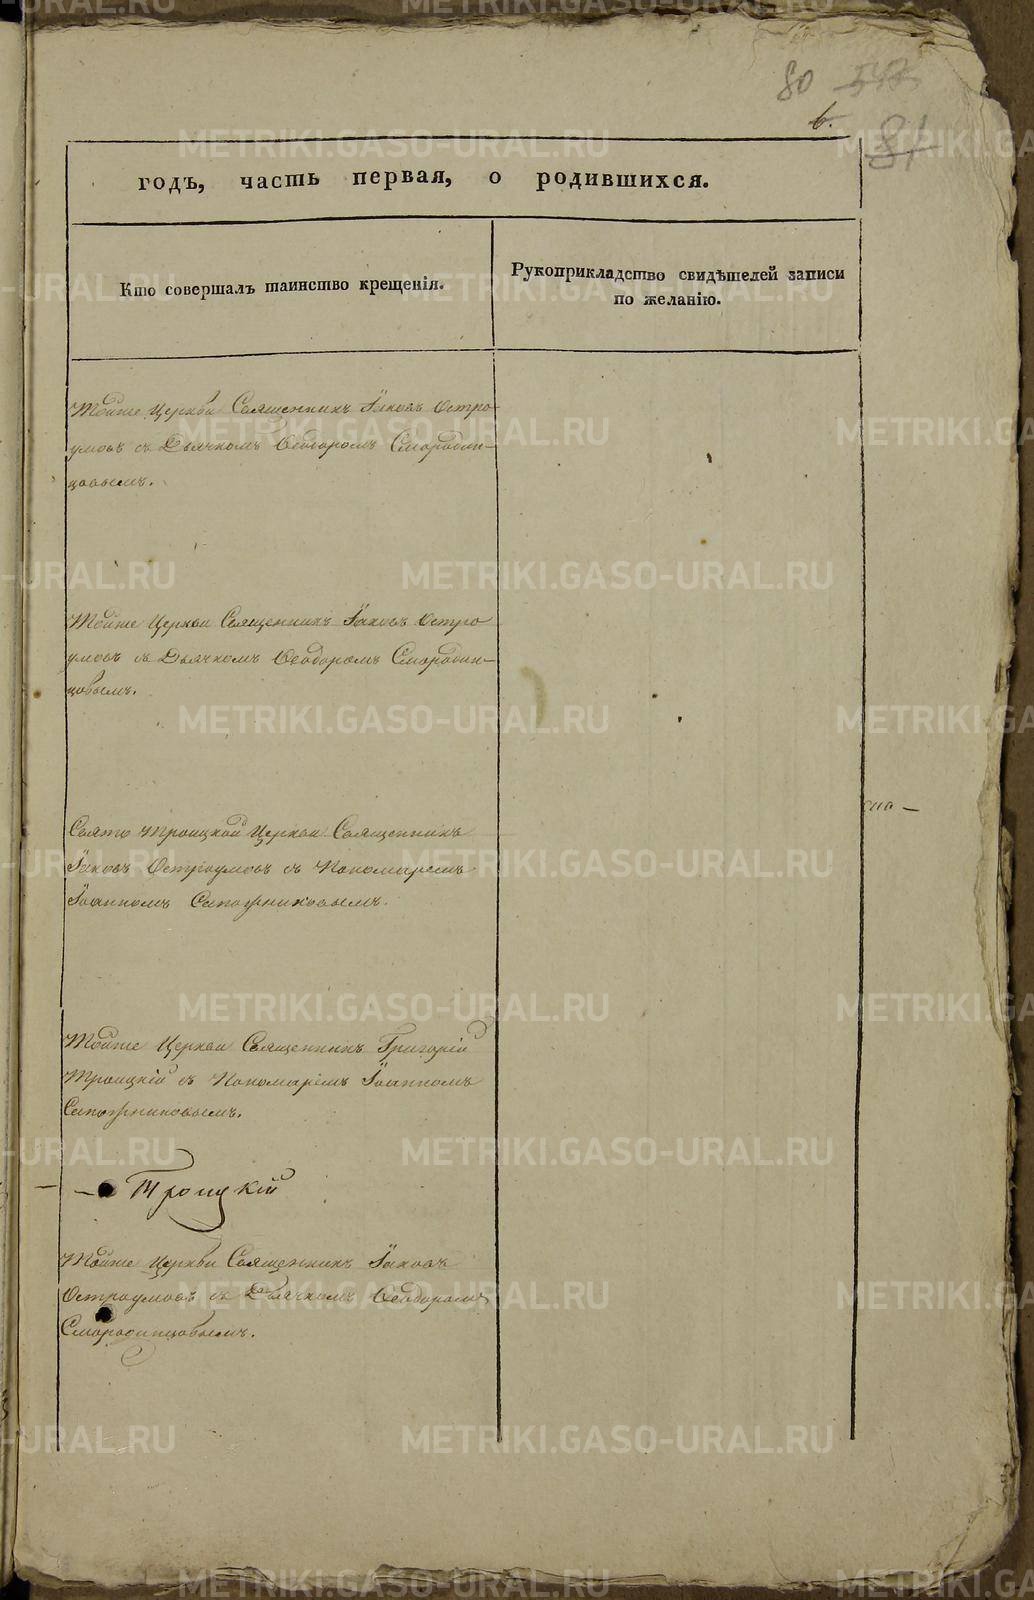 80 547
6. 81
годъ, часть первая, о родившихся.
Кто совершалъ таинство крещенія.
Рукоприкладство свидѣтелей записи
по желанію.
Тойже Церкви Священникъ Іаковъ Остро-
умовъ съ Дьячкомъ Ѳеодоромъ Смородин-
цовымъ.
Тойже Церкви Священникъ Іаковъ Остро
умовъ съ Дьячкомъ Ѳеодоромъ Смородин-
цовымъ.
Свято Троицкой Церкви Священникъ
Іаковъ Остроумовъ съ Пономаремъ
Іоанномъ Сапожниковымъ.
Тойже Церкви Священникъ Григорій
Троицкій съ Пономаремъ Іоанномъ
Сапожниковымъ.
Троицкій
Тойже Церкви Священникъ Іаковъ
Остроумовъ съ Дьячкомъ Ѳеодоромъ
Смородинцовымъ.
METRIKI.GASO-URAL.RU